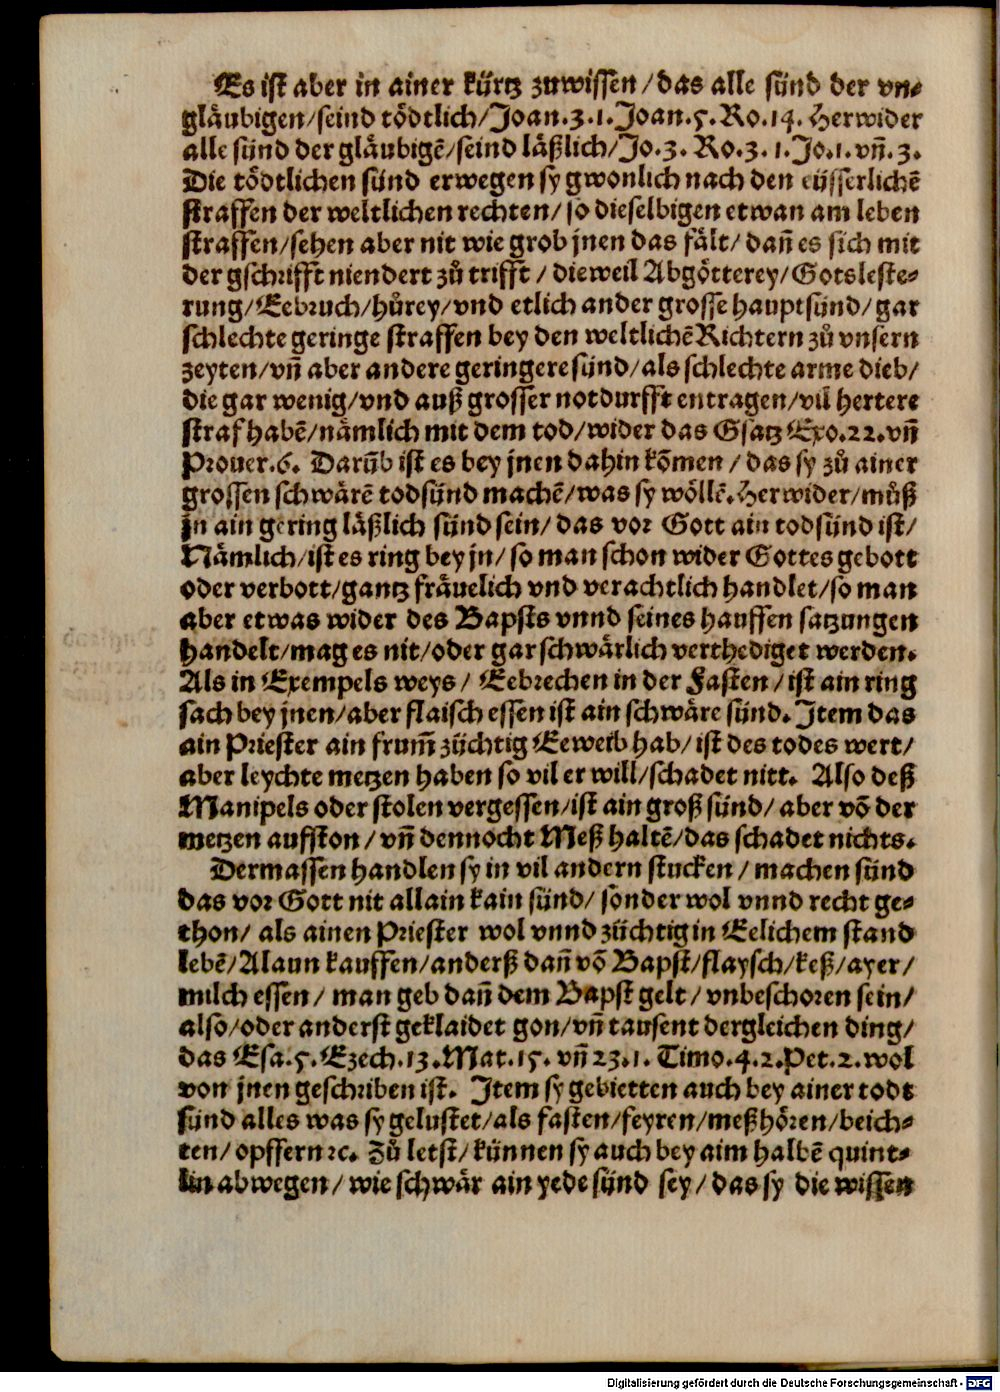 Es ist aber in ainer kürtz zuwissen / das alle sünd der vn⸗
gläubigen / seind tödtlich / Joan.3.1.Joan.5.Ro.14. Herwider
alle sünd der gläubigẽ / seind läßlich / Jo.3. Ro.3.1.Jo.1.vñ.3.
Die tödtlichen sünd erwegen sy gwonlich nach den eüsserlichẽ
straffen der weltlichen rechten / so dieselbigen etwan am leben
straffen / sehen aber nit wie grob jnen das fält / dañ es sich mit
der gschrifft niendert zů trifft / dieweil Abgötterey / Gotsleste⸗
rung / Eebruch / hůrey / vnd etlich ander grosse hauptsünd / gar
schlechte geringe straffen bey den weltlichẽ Richtern zů vnsern
zeyten / vñ aber andere geringere sünd / als schlechte arme dieb /
die gar wenig / vnd auß grosser notdurfft entragen / vil hertere
straf habẽ / nämlich mit dem tod / wider das Gsatz Exo.22.vñ
Prouer.6. Darũb ist es bey jnen dahin kõmen / das sy zů ainer
grossen schwärẽ todsünd machẽ / was sy wöllẽ. Herwider / můß
jn ain gering läßlich sünd sein / das vor Gott ain todsünd ist /
Nämlich / ist es ring bey jn / so man schon wider Gottes gebott
oder verbott / gantz fräuelich vnd verachtlich handlet / so man
aber etwas wider des Bapsts vnnd seines hauffen satzungen
handelt / mag es nit / oder gar schwärlich verthediget werden.
Als in Exempels weys / Eebrechen in der Fasten / ist ain ring
sach bey jnen / aber flaisch essen ist ain schwäre sünd. Item das
ain Priester ain frum̃ züchtig Eeweib hab / ist des todes wert /
aber leychte metzen haben so vil er will / schadet nitt. Also deß
Manipels oder stolen vergessen / ist ain groß sünd / aber võ der
metzen aufston / vñ dennocht Meß haltẽ / das schadet nichts.
Dermassen handlen sy in vil andern stucken / machen sünd
das vor Gott nit allain kain sünd / sonder wol vnnd recht ge⸗
thon / als ainen Priester wol vnnd züchtig in Eelichem stand
lebẽ / Alaun kauffen / anderß dañ võ Bapst / flaysch / keß / ayer /
milch essen / man geb dañ dem Bapst gelt / vnbeschoren sein /
also / oder anderst geklaidet gon / vñ tausent dergleichen ding /
das Esa.5.Ezech.13.Mat.15. vñ 23.1. Timo.4.2.Pet.2. wol
von jnen geschriben ist. Item sy gebietten auch bey ainer todt
sünd alles was sy gelustet / als fasten / feyren / meßhören / beich⸗
ten / opffern ꝛc. Zů letst / künnen sy auch bey aim halbẽ quint⸗
lin abwegen / wie schwär ain yede sünd sey / das sy die wissen
Digitalisierung gefördert durch die Deutsche Forschungsgemeinschaft - DFG